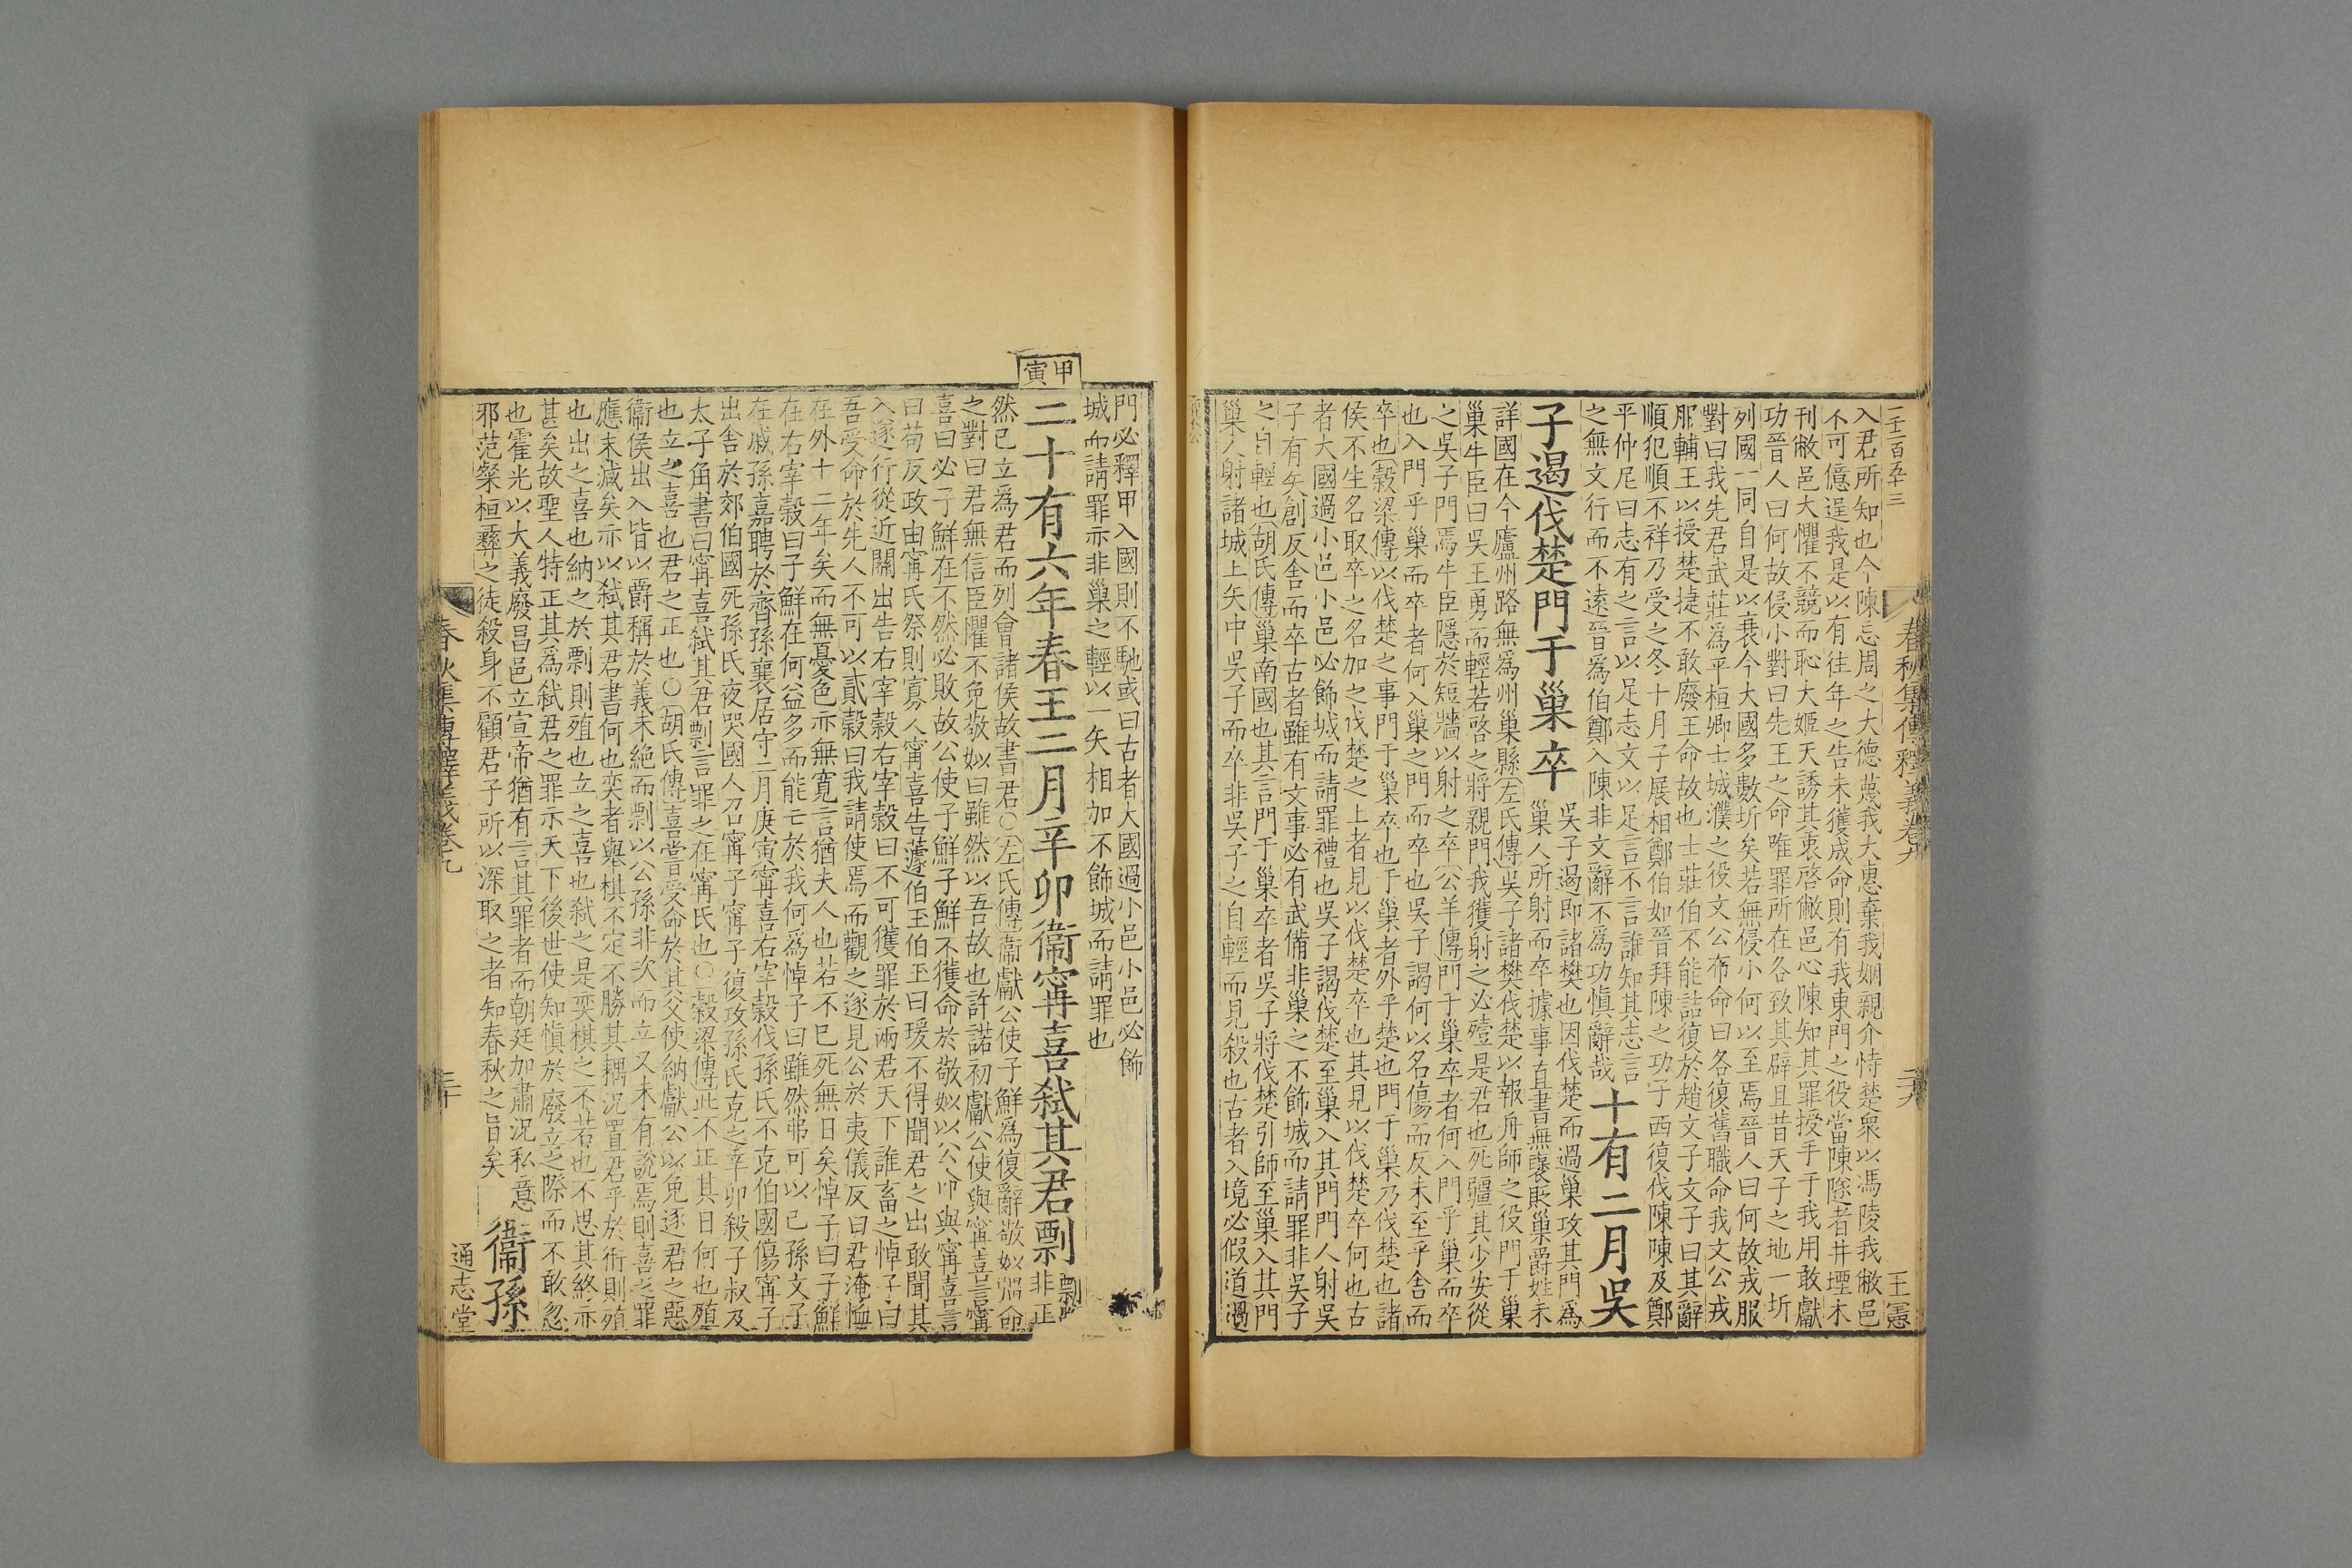 二千二百五十三
春秋集傳釋義卷九
二十九
王憲
入君所知也今陳忘周之大德蔑我大惠棄我姻親介恃楚衆以馮陵我敝邑
不可億逞我是以有往年之告未獲成命則有我東門之役當陳隧者井堙木
刊敝邑大懼不競而恥大姬天誘其衷啓敝邑心陳知其罪授手于我用敢獻
功晉人曰何故侵小對曰先王之命唯罪所在各致其辟且昔天子之地一圻
列國一同自是以衰今大國多數圻矣若無侵小何以至焉晉人曰何故戎服
對曰我先君武莊爲平桓卿士城濮之役文公布命曰各復舊職命我文公戎
服輔王以授楚捷不敢廢王命故也士莊伯不能詰復於趙文子文子曰其辭
順犯順不祥乃受之冬十月子展相鄭伯如晉拜陳之功子西復伐陳陳及鄭
平仲尼曰志有之言以足志文以足言不言誰知其志言
之無文行而不遠晉爲伯鄭入陳非文辭不爲功愼辭哉
十有二月吳
子遏伐楚門于巢卒
吳子遏即諸樊也因伐楚而過巢攻其門爲
巢人所射而卒據事直書無褒貶巢爵姓未
詳國在今廬州路無爲州巢縣左氏傳吳子諸樊伐楚以報舟師之役門于巢
巢牛臣曰吳王勇而輕若啓之將親門我獲射之必殪是君也死疆其少安從
之吳子門焉牛臣隱於短牆以射之卒公羊傳門于巢卒者何入門乎巢而卒
也入門乎巢而卒者何入巢之門而卒也吳子謁何以名傷而反未至乎舍而
卒也穀梁傳以伐楚之事門于巢卒也于巢者外乎楚也門于巢乃伐楚也諸
侯不生名取卒之名加之伐楚之上者見以伐楚卒也其見以伐楚卒何也古
者大國過小邑小邑必飾城而請罪禮也吳子謁伐楚至巢入其門門人射吳
子有矢創反舍而卒古者雖有文事必有武備非巢之不飾城而請罪非吳子
之自輕也胡氏傳巢南國也其言門于巢卒者吳子將伐楚引師至巢入其門
巢人射諸城上矢中吳子而卒非吳子之自輕而見殺也古者入境必假道過
門必釋甲入國則不馳或曰古者大國過小邑小邑必飾
城而請罪亦非巢之輕以一矢相加不飾城而請罪也
甲寅
二十有六年春王二月辛卯衞甯喜弒其君剽
剽
非正
然已立爲君而列會諸侯故書君○左氏傳衞獻公使子鮮爲復辭敬姒强命
之對曰君無信臣懼不免敬姒曰雖然以吾故也許諾初獻公使與甯喜言甯
喜曰必子鮮在不然必敗故公使子鮮子鮮不獲命於敬姒以公命與甯喜言
曰苟反政由甯氏祭則寡人甯喜告蘧伯玉伯玉曰瑗不得聞君之出敢聞其
入遂行從近關出告右宰穀右宰穀曰不可獲罪於兩君天下誰畜之悼子曰
吾受命於先人不可以貳穀曰我請使焉而觀之遂見公於夷儀反曰君淹恤
在外十二年矣而無憂色亦無寬言猶夫人也若不已死無日矣悼子曰子鮮
在右宰穀曰子鮮在何益多而能亡於我何爲悼子曰雖然弗可以已孫文子
在戚孫嘉聘於齊孫襄居守二月庚寅甯喜右宰穀伐孫氏不克伯國傷甯子
出舍於郊伯國死孫氏夜哭國人召甯子甯子復攻孫氏克之辛卯殺子叔及
太子角書曰甯喜弒其君剽言罪之在甯氏也○穀梁傳此不正其日何也殖
也立之喜也君之正也○胡氏傳喜嘗受命於其父使納獻公以免逐君之惡
衞侯出入皆以爵稱於義未絕而剽以公孫非次而立又未有說焉則喜之罪
應末減矣亦以弒其君書何也奕者舉棋不定不勝其耦況置君乎於衎則殖
也出之喜也納之於剽則殖也立之喜也弒之是奕棋之不若也不思其終亦
甚矣故聖人特正其爲弒君之罪示天下後世使知愼於廢立之際而不敢忽
也霍光以大義廢昌邑立宣帝猶有言其罪者而朝廷加肅況私意
邪范粲桓彝之徒殺身不顧君子所以深取之者知春秋之旨矣
衞孫
春秋集傳釋義卷九
三十
通志堂